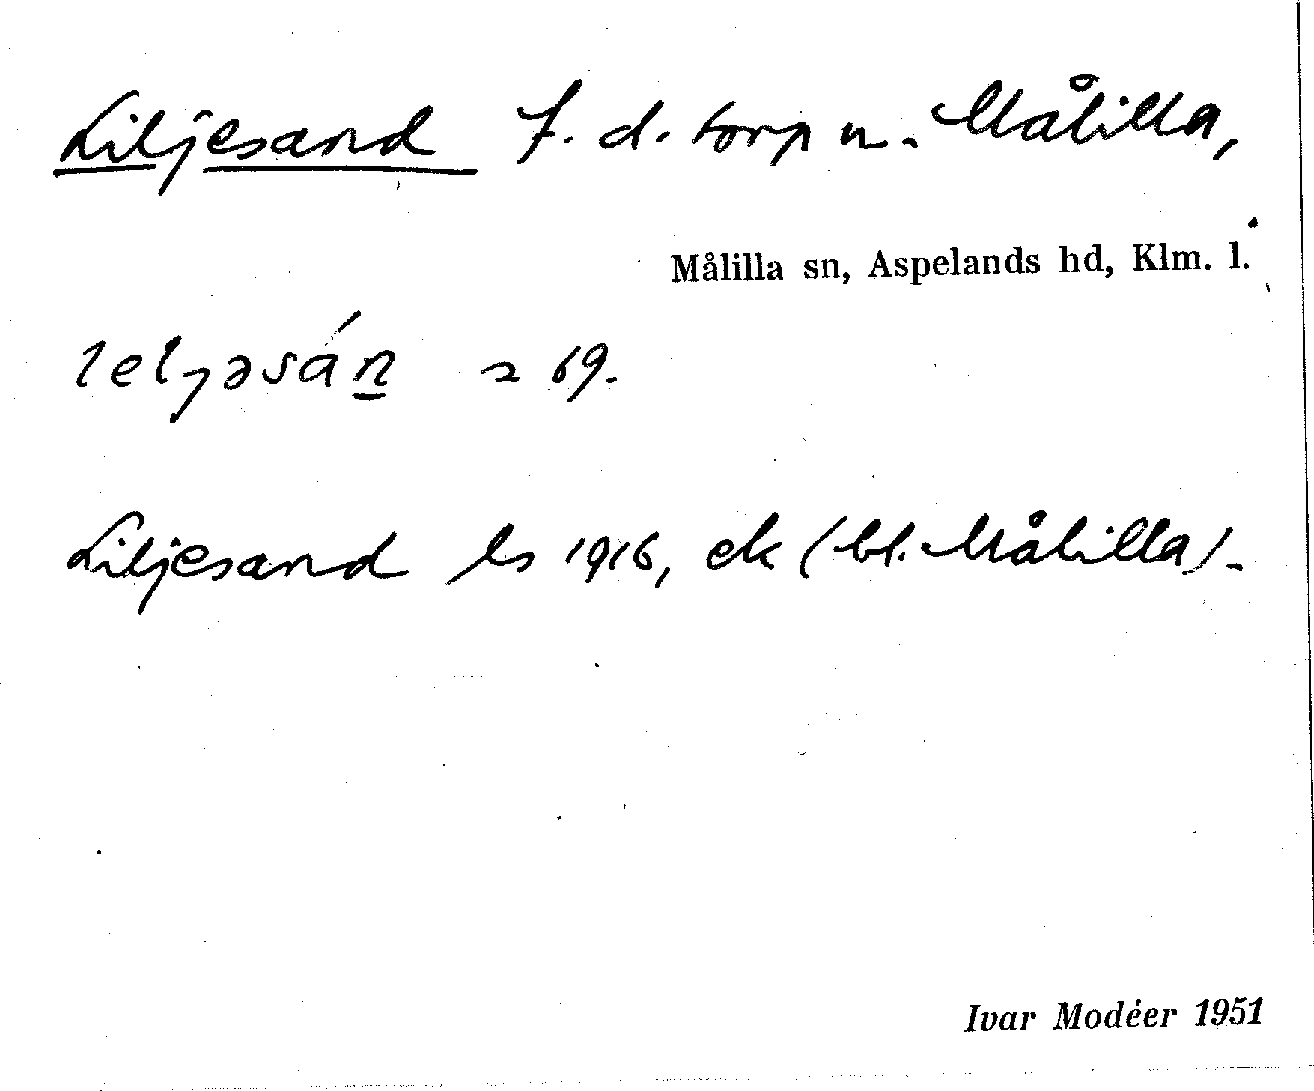 Liljesand f. d. torp u. Målilla,
Målilla sn, Aspelands hd, Klm. l.
leljəsán̲ 269.
Liljesand ls 1916, ek (bl. Målilla).
Ivar Modéer 1951